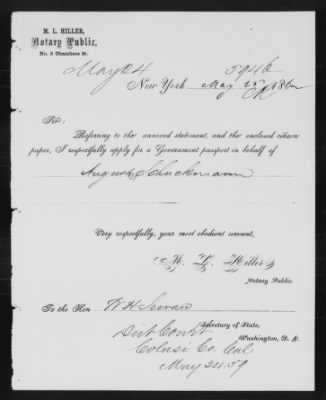 M. L. HILLER,
Notary Public,
No. 3 Chambers St.
May 24 5946
New York May 25 1862
Sir:
Referring to the annexed statement, and the enclosed citizen
paper, I respectfully apply for a Government passport in behalf of
August Schuckmann
Very respectfully, your most obedient servant,
M. L. Hiller
Notary Public.
To the Hon W H Seward
Secretary of State,
Washington, D. C.
Dist Court
Colusi Co. Cal
May 24 59